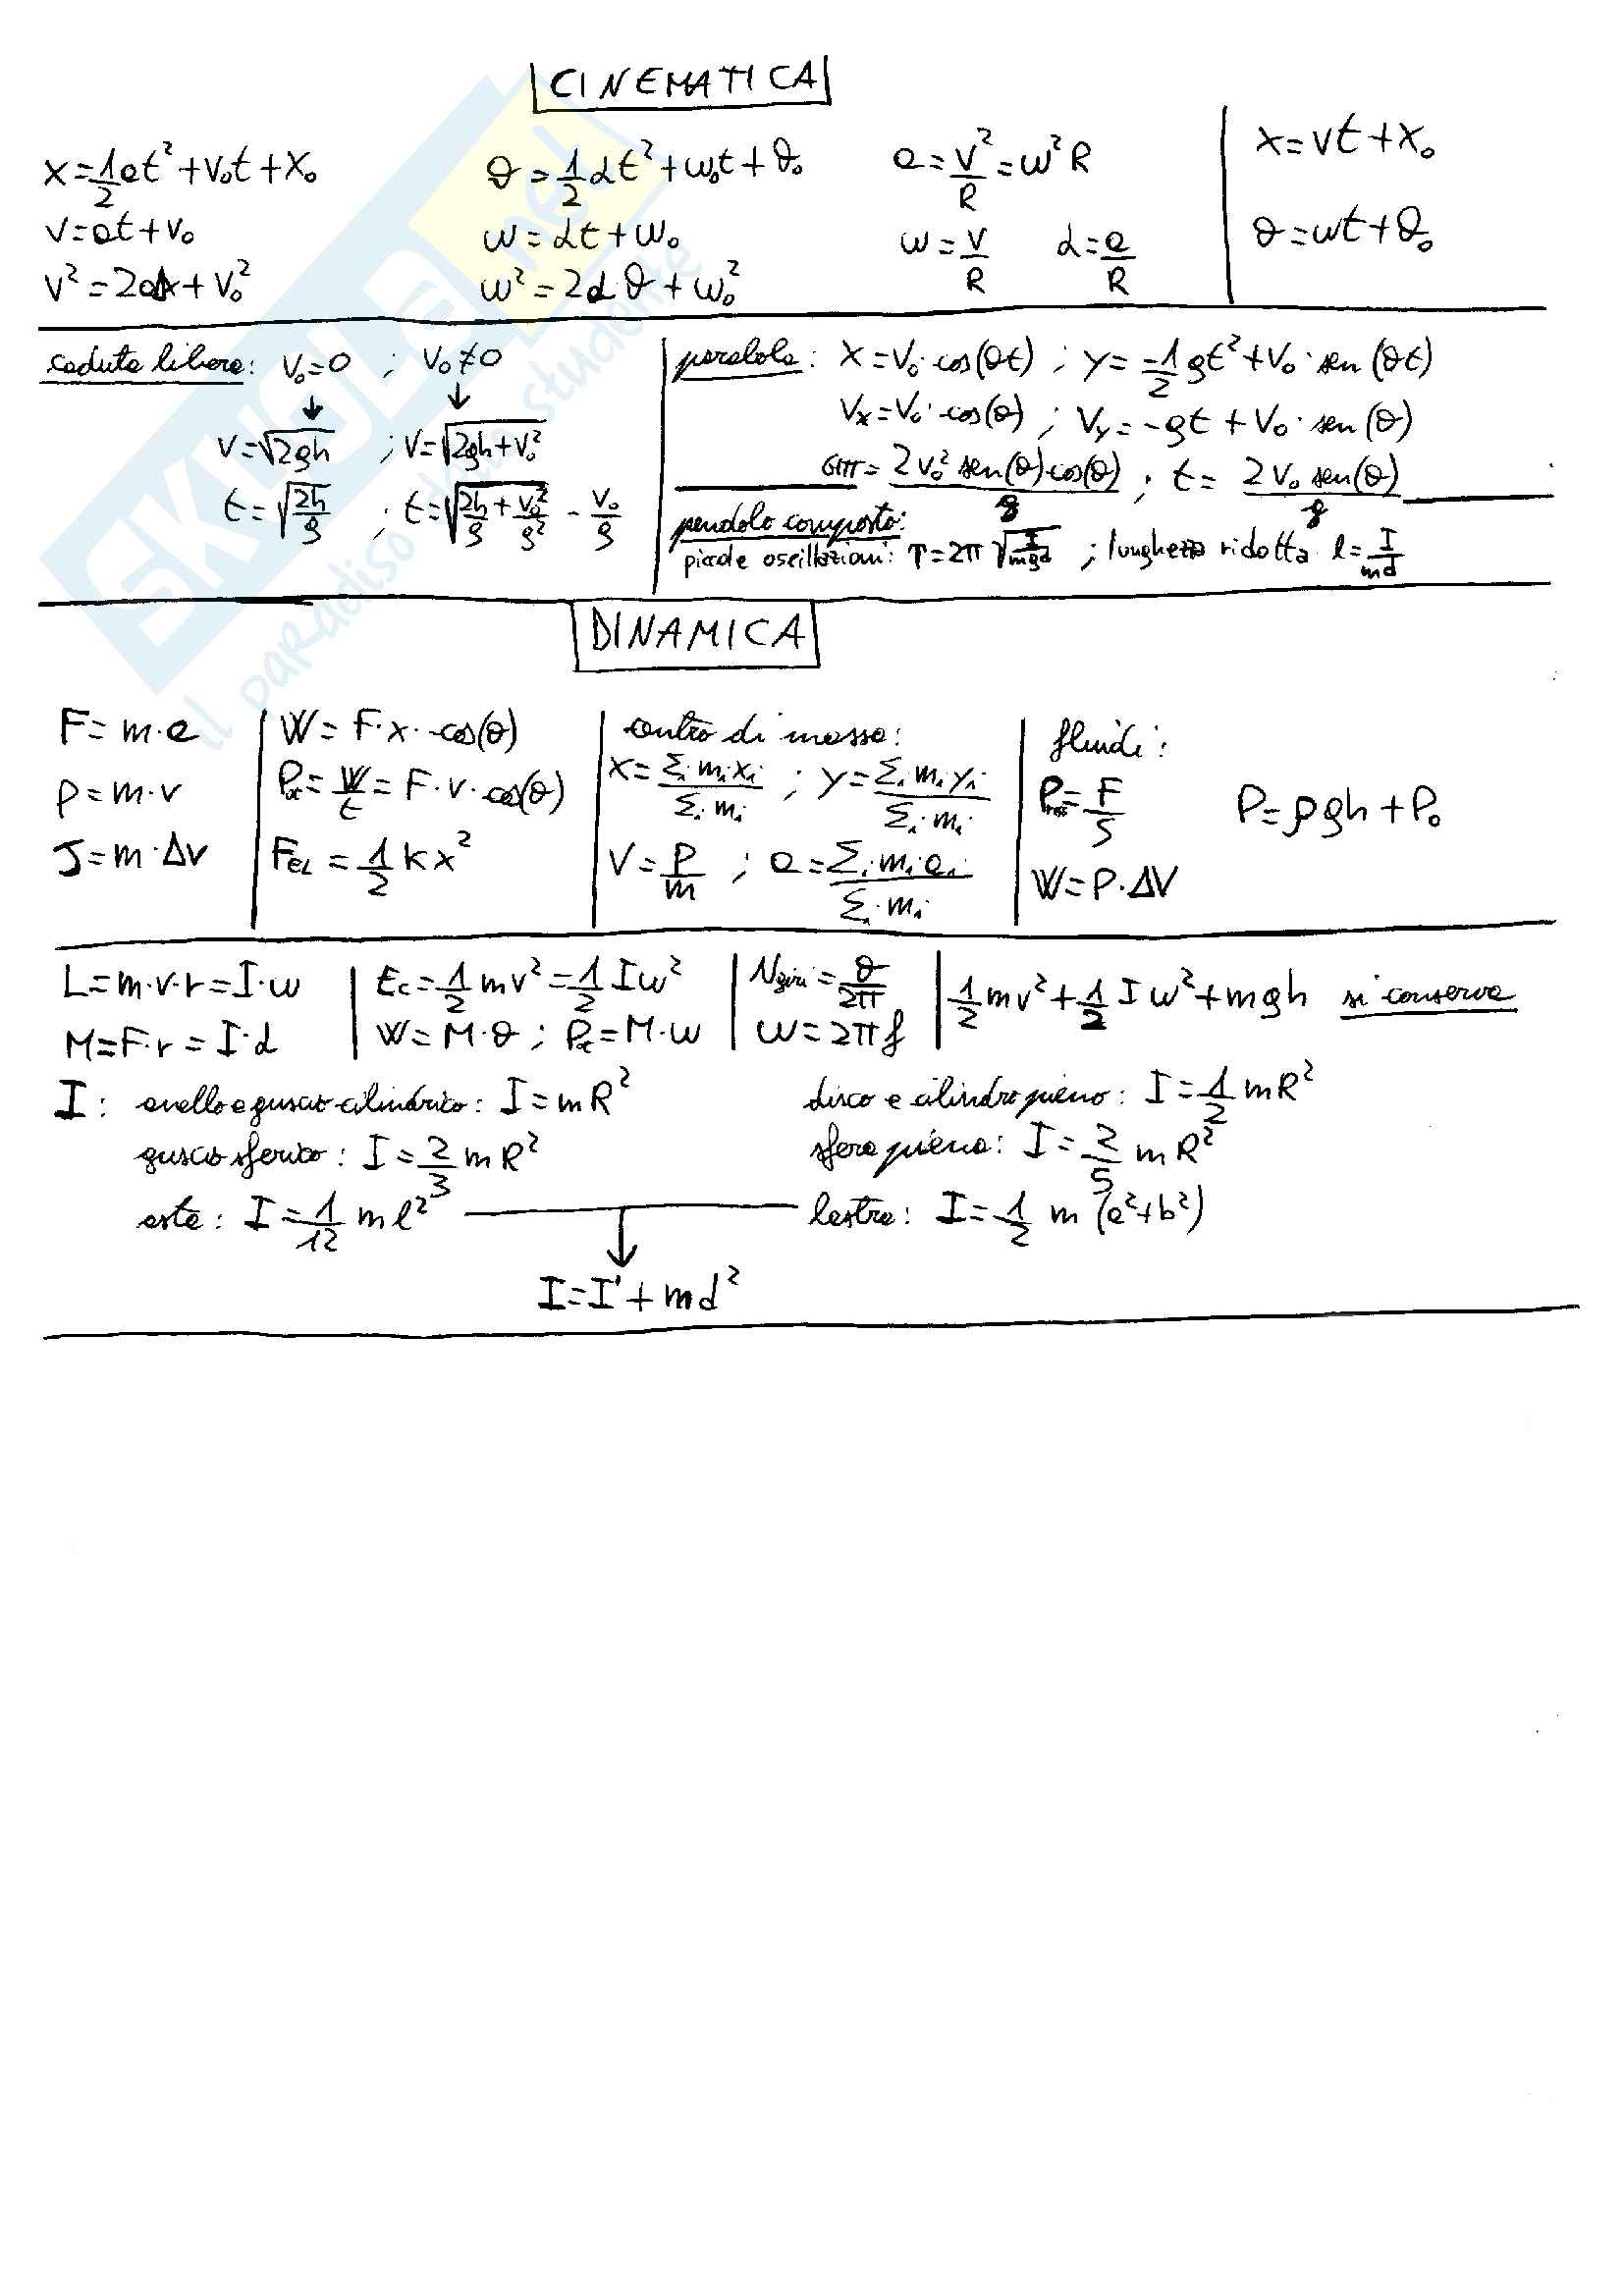 CINEMATICA
x = 1/2 at² + v₀t + x₀
v = at + v₀
v² = 2aΔx + v₀²
θ = 1/2 αt² + ω₀t + θ₀
ω = αt + ω₀
ω² = 2αθ + ω₀²
a = v²/R = ω²R
ω = v/R α = a/R
x = vt + x₀
θ = ωt + θ₀
caduta libera: v₀=0 ; v₀≠0
↓ ↓
v = √(2gh) ; v = √(2gh + v₀²)
t = √(2h/g) ; t = √(2h/g + v₀²/g²) - v₀/g
parabola: x = v₀·cos(θt) ; y = -1/2 gt² + v₀·sen(θt)
vₓ = v₀·cos(θ) ; v_y = -gt + v₀·sen(θ)
GITT = 2v₀² sen(θ)cos(θ)/g ; t = 2v₀ sen(θ)/g
pendolo composto:
piccole oscillazioni: T = 2π √(I/mgd) ; lunghezza ridotta l = I/md
DINAMICA
F = m·a
p = m·v
J = m·Δv
W = F·x·cos(θ)
Pₒₜ = W/t = F·v·cos(θ)
F_EL = 1/2 kx²
centro di massa:
x = Σᵢ mᵢxᵢ / Σᵢ mᵢ ; y = Σᵢ mᵢyᵢ / Σᵢ mᵢ
v = p/m ; a = Σᵢ mᵢaᵢ / Σᵢ mᵢ
fluidi:
P = F/S P = ρgh + P₀
W = P·ΔV
L = m·v·r = I·ω
M = F·r = I·α
Ec = 1/2 mv² = 1/2 Iω²
W = M·θ ; Pₒₜ = M·ω
N giri = θ/2π
ω = 2πf
1/2 mv² + 1/2 Iω² + mgh si conserva
I: anello e guscio cilindrico: I = mR² disco e cilindro pieno: I = 1/2 mR²
guscio sferico: I = 2/3 mR² sfera piena: I = 2/5 mR²
asta: I = 1/12 ml² lastra: I = 1/2 m (a²+b²)
↓
I = I' + md²
SKUOLA.net
il paradiso dello studente